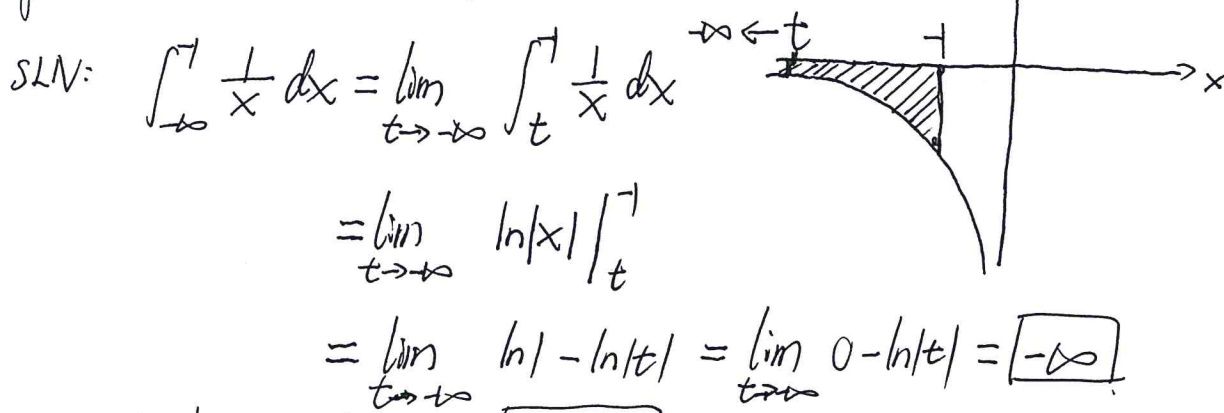 -∞ ← t -1
SLN: ∫_{-∞}^{-1} 1/x dx = lim_{t→-∞} ∫_t^{-1} 1/x dx
x
= lim_{t→-∞} ln|x| |_t^{-1}
= lim_{t→-∞} ln1 - ln|t| = lim_{t→-∞} 0 - ln|t| = -∞